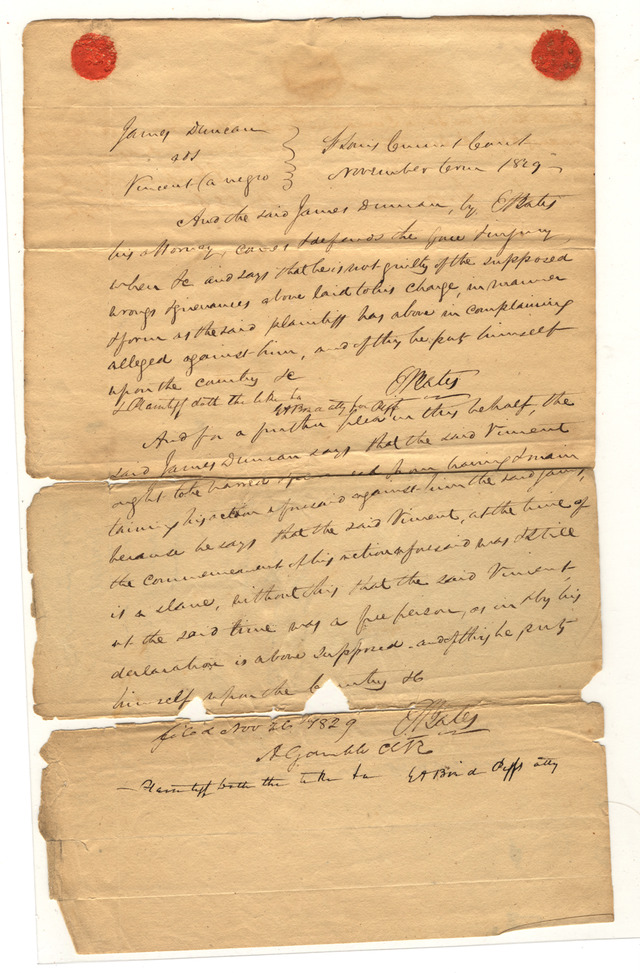 James Duncan
ads
Vincent (a negro
St Louis Circuit Court
November term 1829
And the said James Duncan, by, E Bates
his attorney, comes & defends the force & injury
when &c and says that he is not guilty of the supposed
wrongs & grievances above laid to his charge, in manner
& form as the said plaintiff has above in complaining
alleged against him, and of this he puts himself
upon the country &c
E Bates
& Plaintiff doth the like &c
atty for Plff
And for a further plea in this behalf, the
said James Duncan says that the said Vincent
ought to be barred & from having & main
taining his action aforesaid against him the said James,
because he says that the said Vincent, at the time of
the commencement of his action aforesaid was & still
is a slave, without this that the said Vincent,
at the said time was a free person, as in & by his
declaration is above supposed. and of this he, puts
himself upon the Country &c
E Bates
filed Nov 26 1829
A Gamble Clk
Plaintiff doth the like &c
Plffs atty